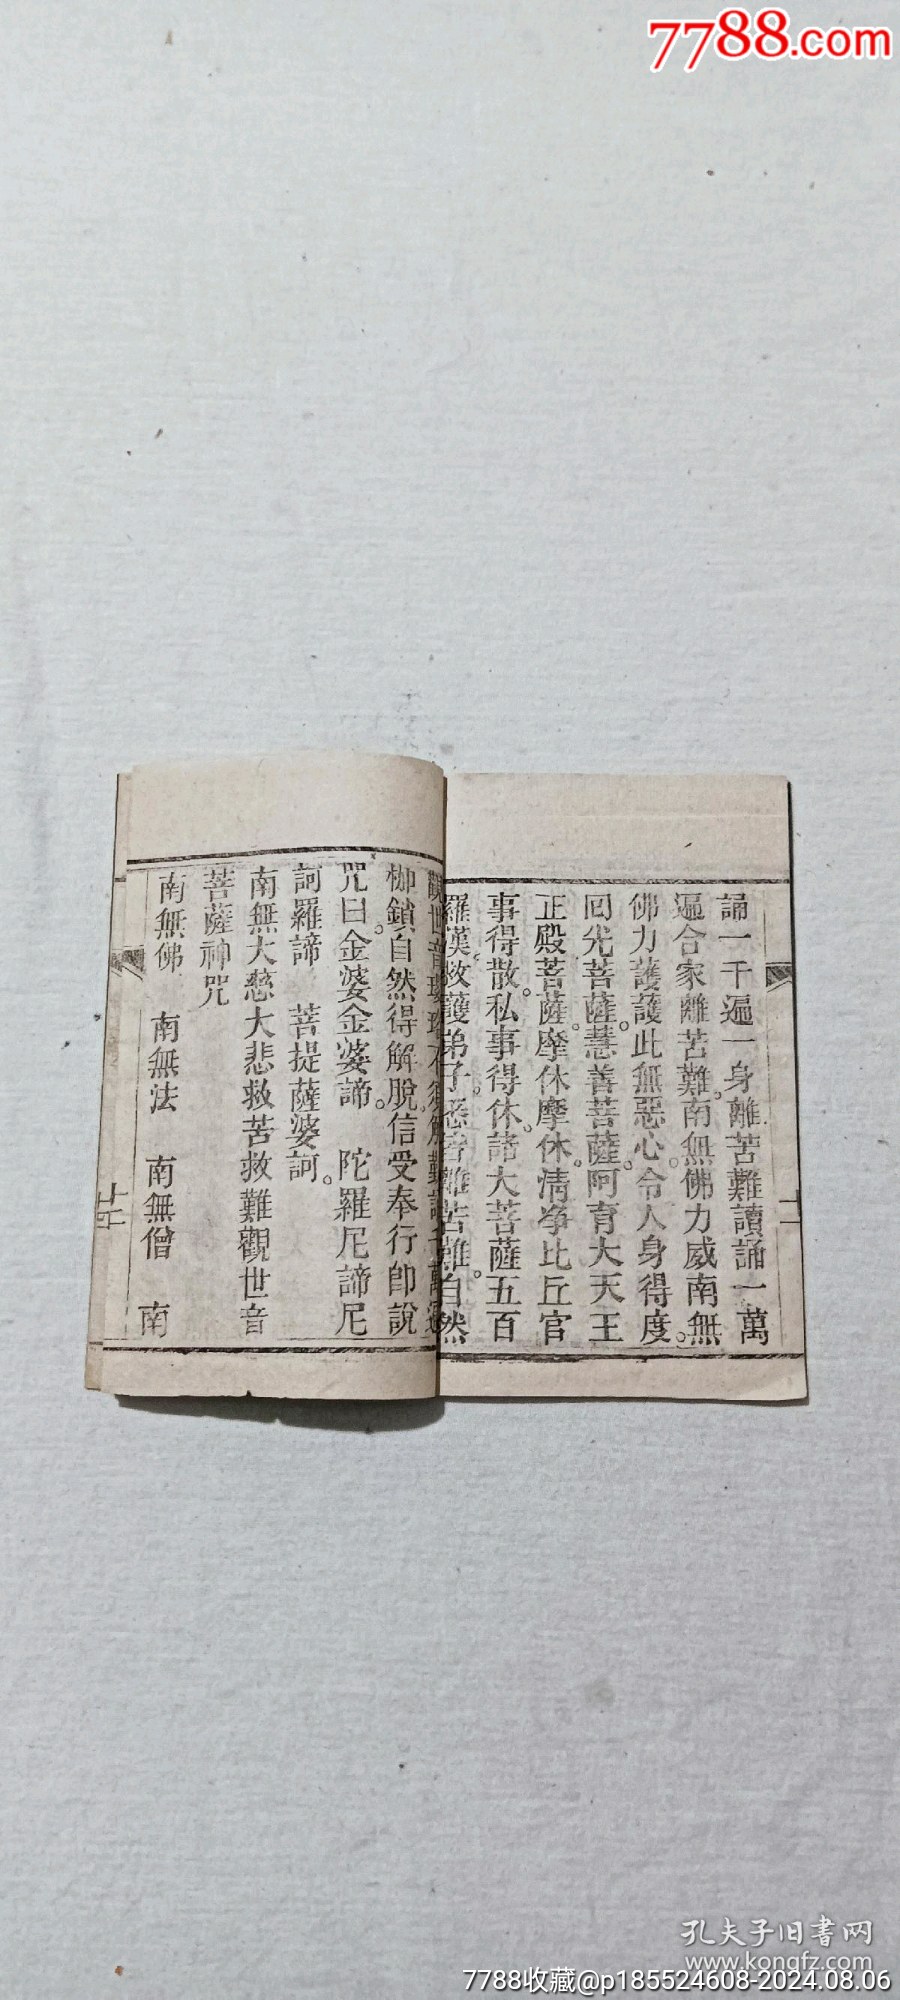 7788.com
誦一千遍一身離苦難讀誦一萬
遍合家離苦難南無佛力威南無
佛力護護此無惡心令人身得度
回光菩薩慧善菩薩阿育大天王
正殿菩薩摩休摩休清净比丘官
事得散私事得休諸大菩薩五百
羅漢救護弟子悉皆離苦難自然
觀世音
枷鎖自然得解脫信受奉行即說
咒曰金婆金婆諦 陀羅尼諦尼
訶羅諦 菩提薩婆訶
南無大慈大悲救苦救難觀世音
菩薩神咒
南無佛 南無法 南無僧 南
孔夫子旧書网
www.kongfz.com
7788收藏@p185524608-2024.08.06